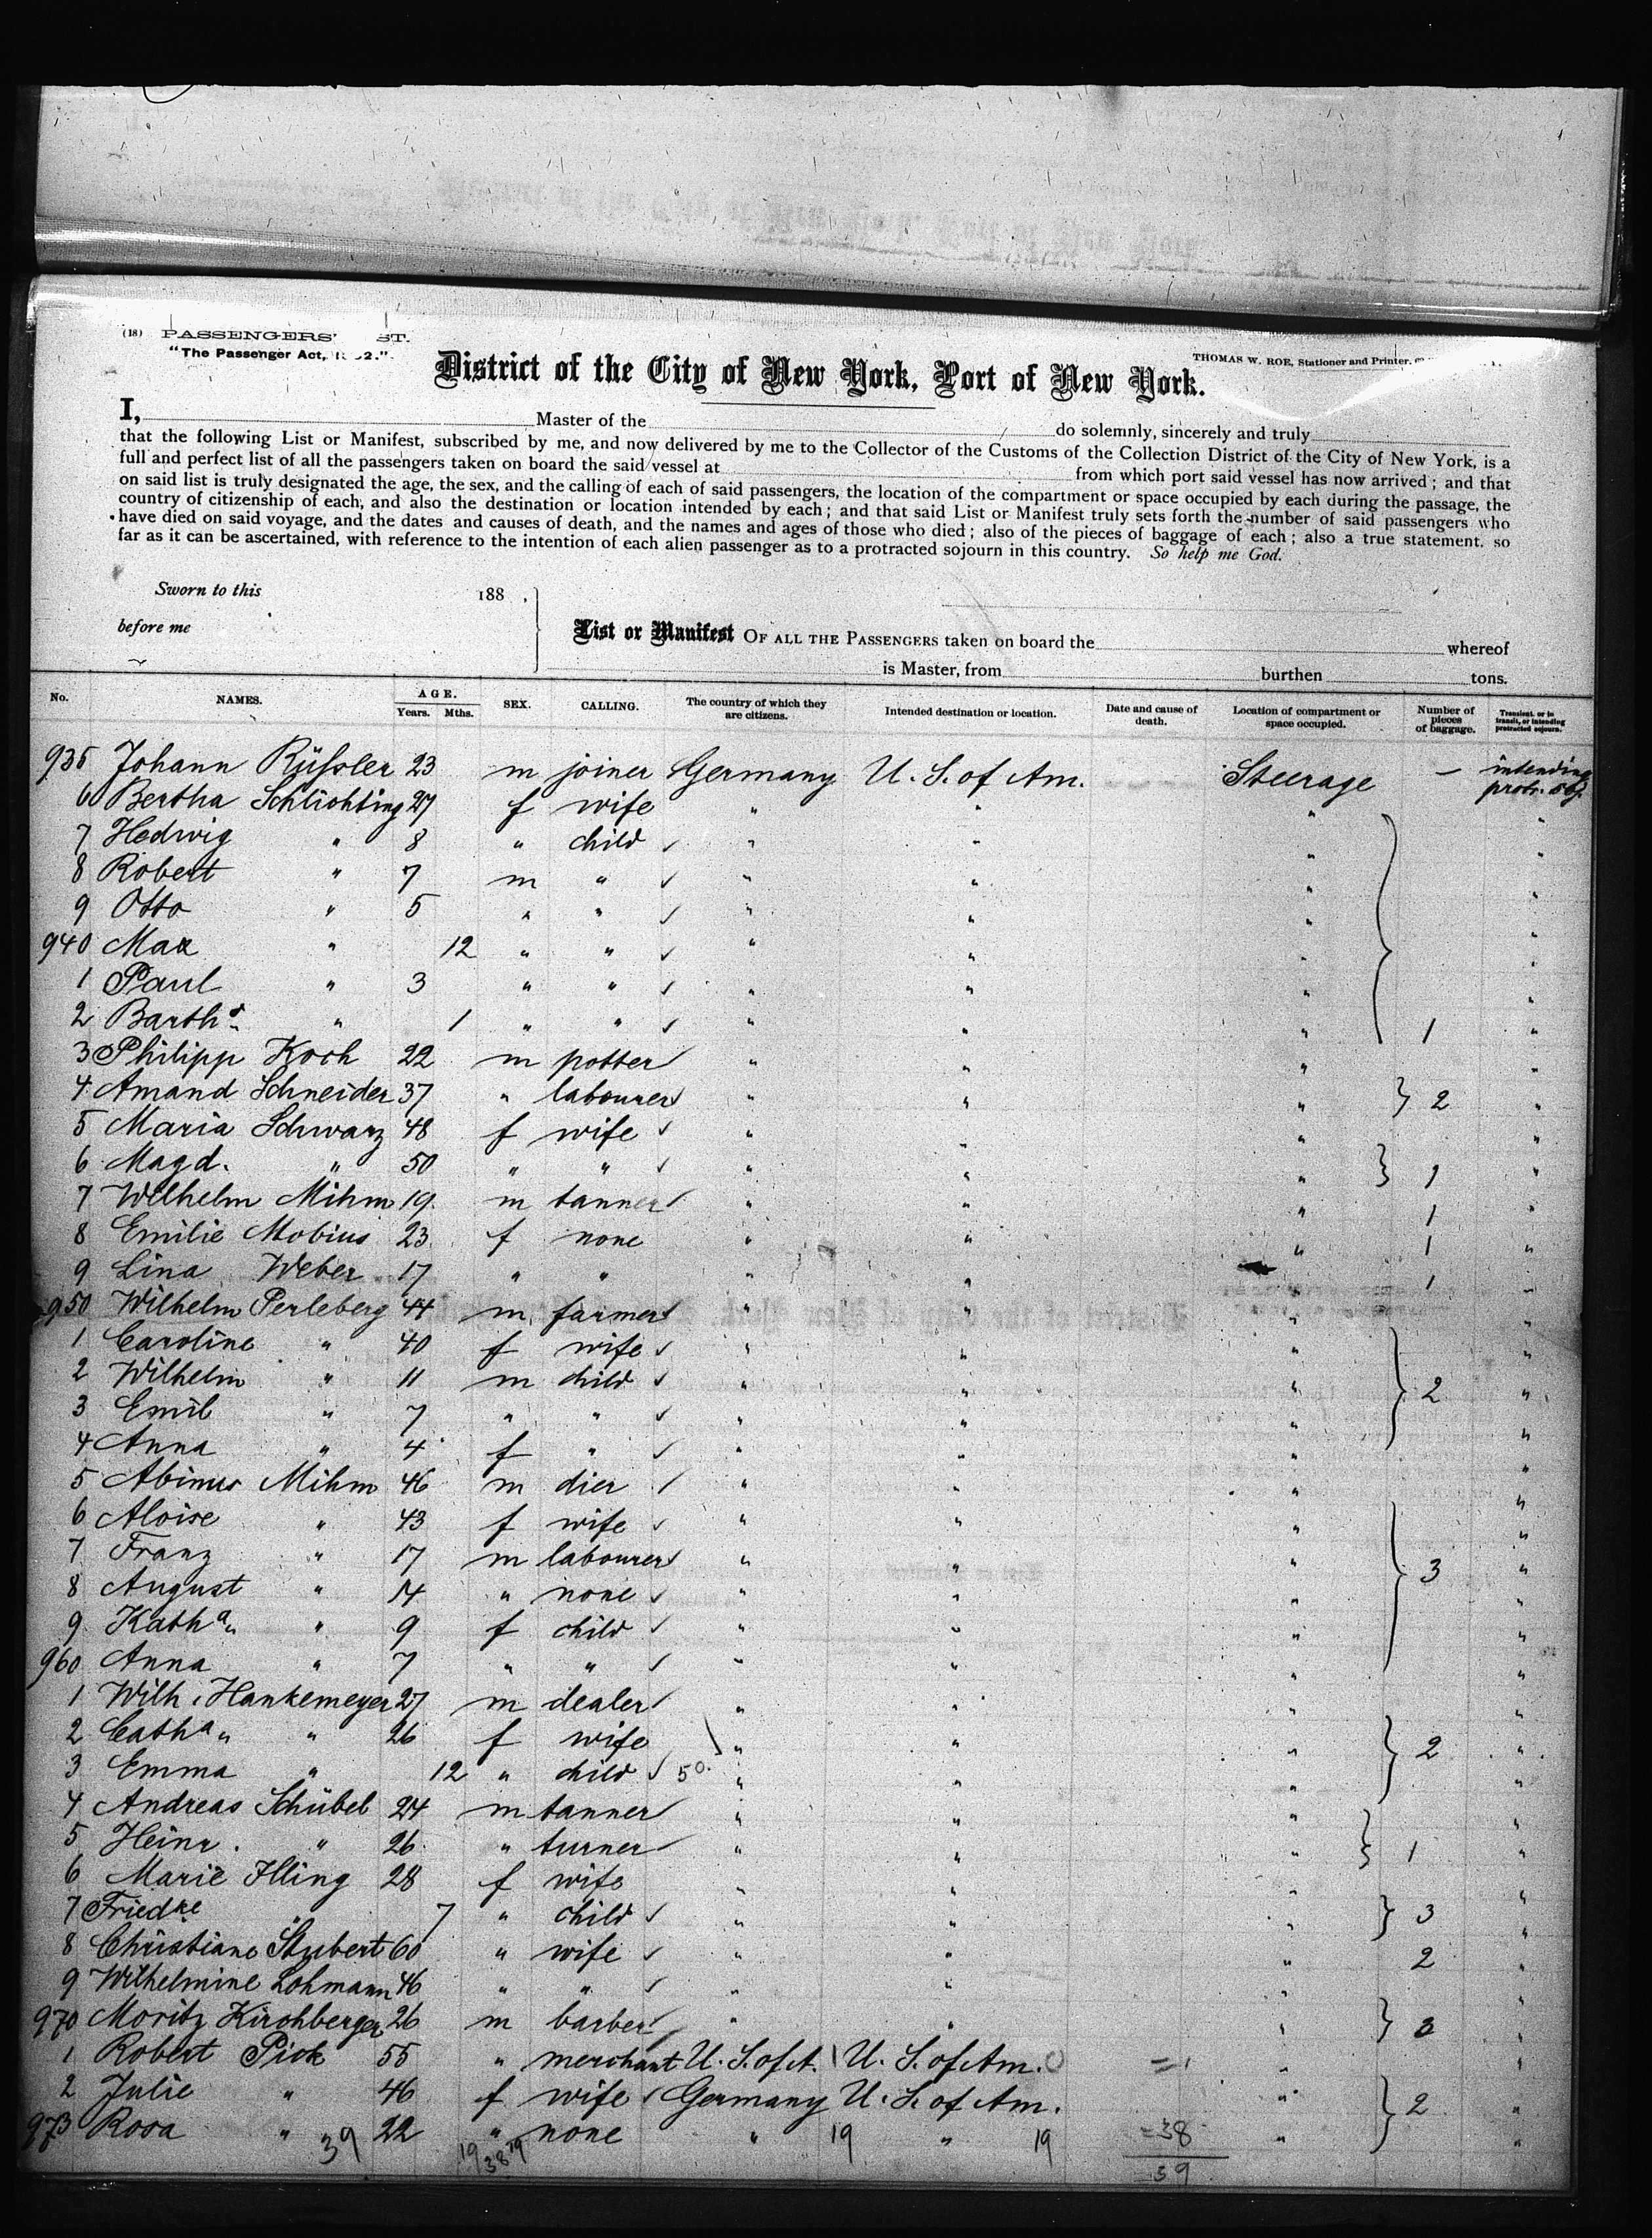 (18) PASSENGERS' ST.
"The Passenger Act, 2."
THOMAS W. ROE, Stationer and Printer.
District of the City of New York, Port of New York.
I, Master of the do solemnly, sincerely and truly
that the following List or Manifest, subscribed by me, and now delivered by me to the Collector of the Customs of the Collection District of the City of New York, is a
full and perfect list of all the passengers taken on board the said vessel at from which port said vessel has now arrived; and that
on said list is truly designated the age, the sex, and the calling of each of said passengers, the location of the compartment or space occupied by each during the passage, the
country of citizenship of each, and also the destination or location intended by each; and that said List or Manifest truly sets forth the number of said passengers who
have died on said voyage, and the dates and causes of death, and the names and ages of those who died; also of the pieces of baggage of each; also a true statement, so
far as it can be ascertained, with reference to the intention of each alien passenger as to a protracted sojourn in this country. So help me God.
Sworn to this 188 .
before me
List or Manifest OF ALL THE PASSENGERS taken on board the whereof
is Master, from burthen tons.
No. NAMES. AGE. Years. Mths. SEX. CALLING. The country of which they are citizens. Intended destination or location. Date and cause of death. Location of compartment or space occupied. Number of pieces of baggage. Transient, or in transit, or intending protracted sojourn.
935 Johann Rüssler 23 m joiner Germany U. S. of Am. Steerage — intending protr. soj.
6 Bertha Schlichting 27 f wife " " " "
7 Hedwig " 8 " child " " " "
8 Robert " 7 m " " " " "
9 Otto " 5 " " " " " "
940 Max " 12 " " " " " "
1 Paul " 3 " " " " " "
2 Barthd. " 1 " " " " " 1 "
3 Philipp Koch 22 m potter " " " "
4 Amand Schneider 37 " labourer " " " 2 "
5 Maria Schwarz 48 f wife " " " "
6 Magd. " 50 " " " " " 1 "
7 Wilhelm Mihm 19 m tanner " " " 1 "
8 Emilie Mobius 23 f none " " " 1 "
9 Lina Weber 17 " " " " 1 "
950 Wilhelm Perleberg 44 m farmer " " " "
1 Caroline " 40 f wife " " " "
2 Wilhelm " 11 m child " " " 2 "
3 Emil " 7 " " " " " "
4 Anna " 4 f " " " " "
5 Abinus Mihm 46 m dier " " " "
6 Aloise " 43 f wife " " " "
7 Franz " 17 m labourer " " " 3 "
8 August " 14 " none " " " "
9 Katha. " 9 f child " " " "
960 Anna " 7 " " " " " "
1 Wilh. Hankemeyer 27 m dealer " " " "
2 Catha. " 26 f wife " " " 2 "
3 Emma " 12 " child 50. " " " "
4 Andreas Schübel 24 m tanner " " " "
5 Heinr. " 26 " turner " " " 1 "
6 Marie Illing 28 f wife " " " "
7 Friedke " 7 " child " " " 3 "
8 Christiane Stubert 60 " wife " " " 2 "
9 Wilhelmine Lohmann 46 " " " " " "
970 Moritz Kirchberger 26 m barber " " " 3 "
1 Robert Pick 55 " merchant U. S. of A. U. S. of Am. = 1 " "
2 Julie " 46 f wife Germany U. S. of Am. " 2 "
973 Rosa " 22 " none " 19 " 19 =38 " "
39 19 38 19 39